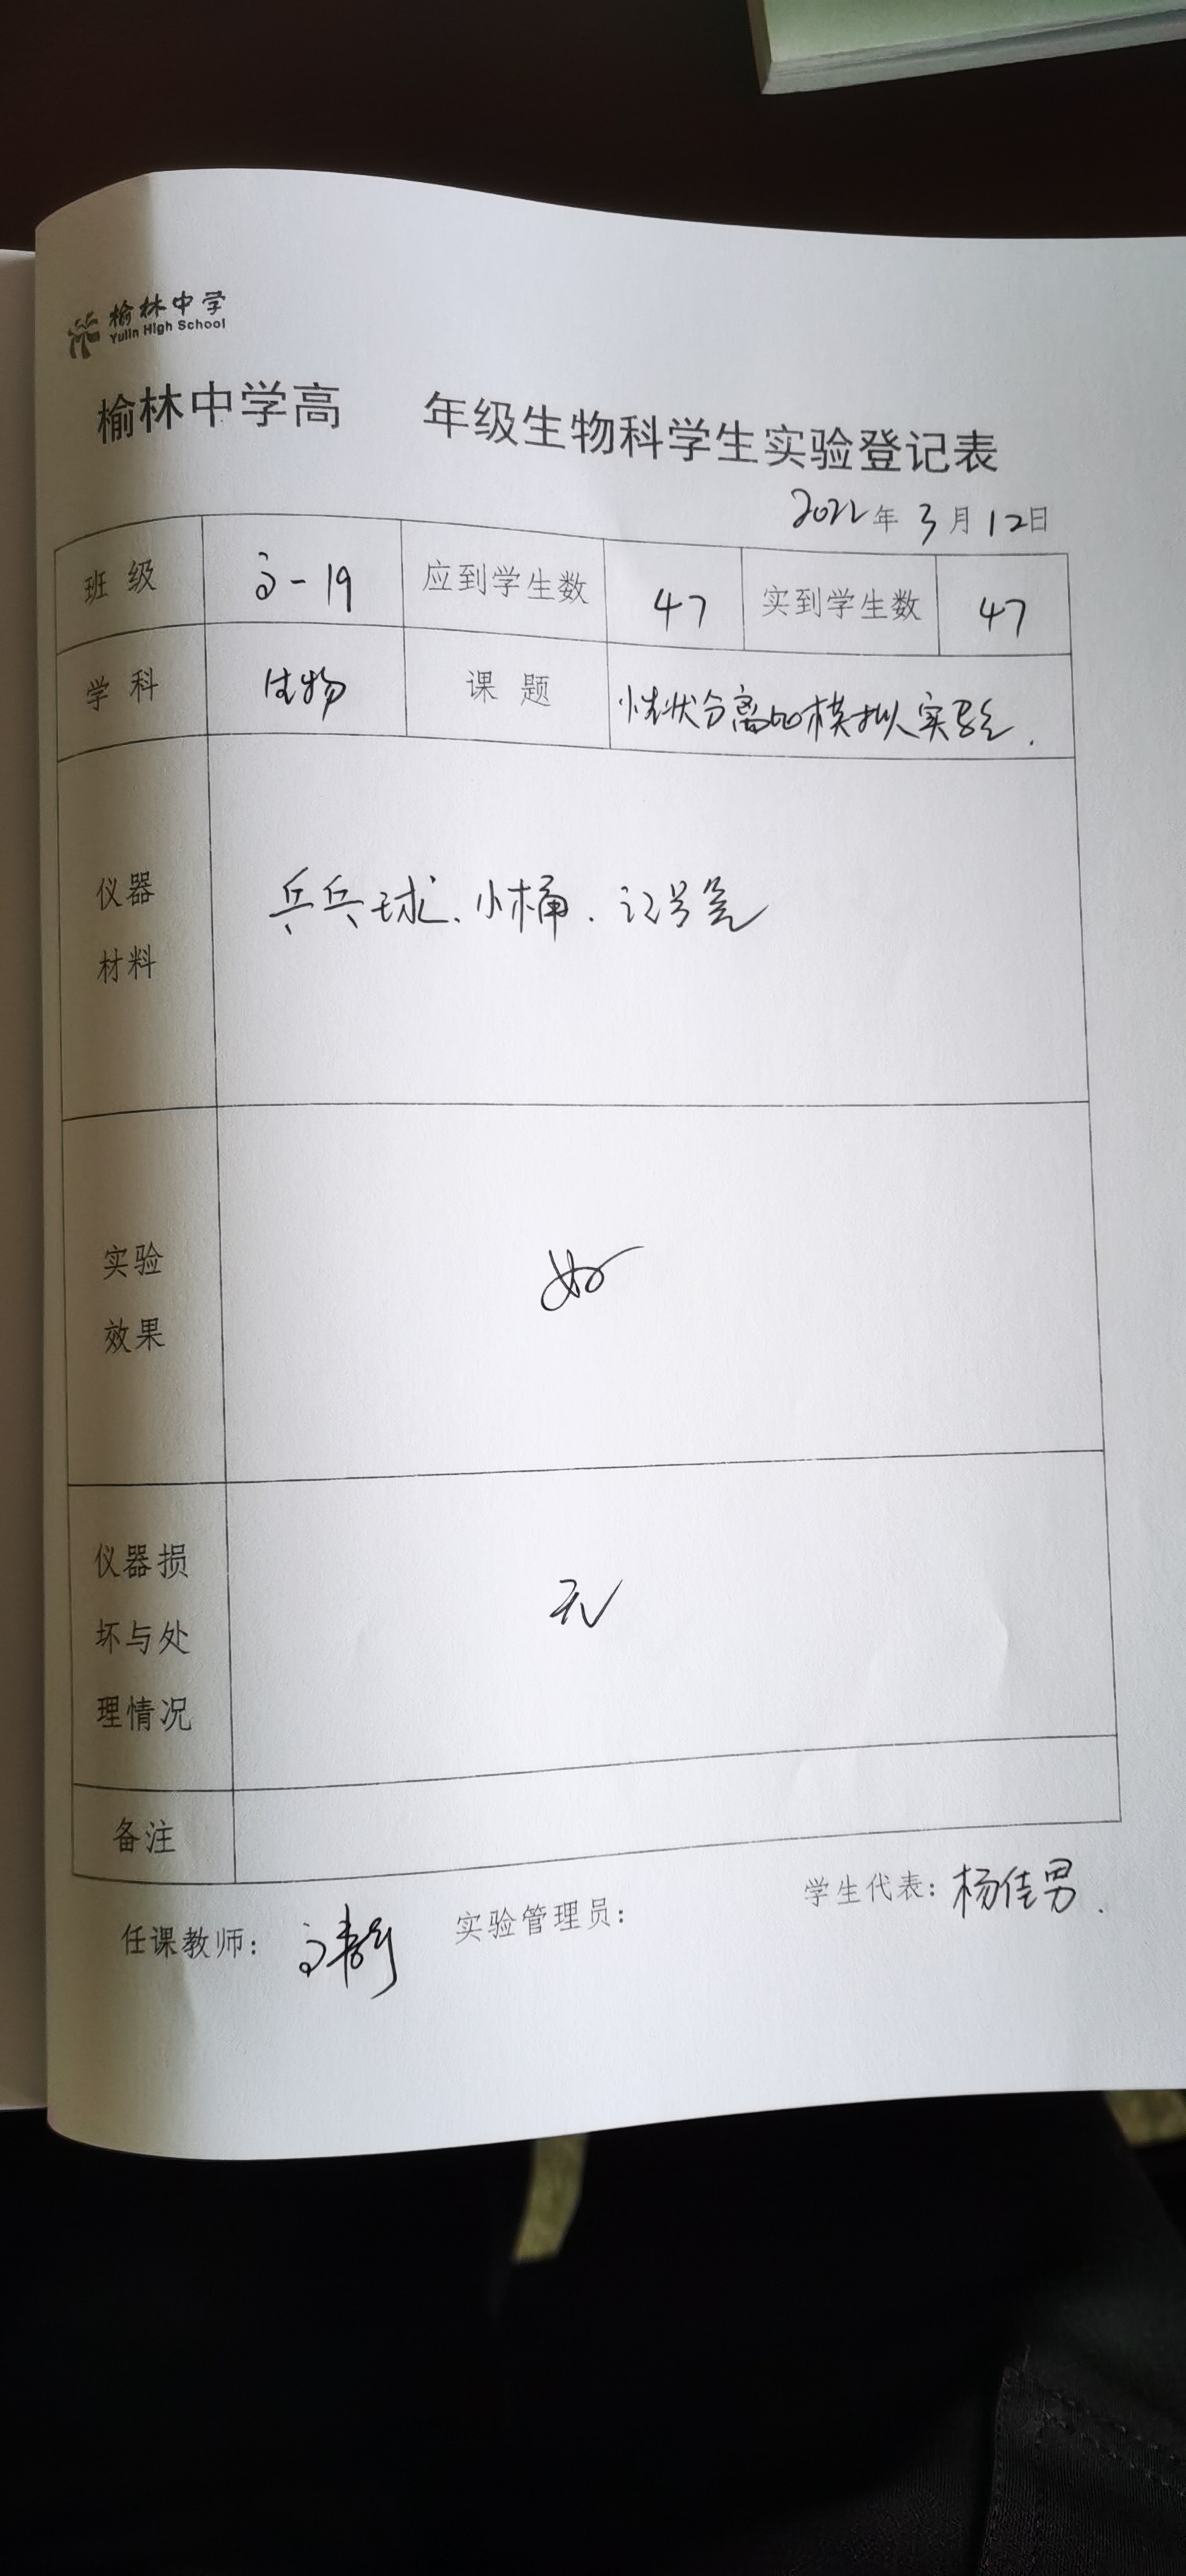 榆林中学
Yulin High School
榆林中学高 年级生物科学生实验登记表
2022年3月12日
班级 高-19 应到学生数 47 实到学生数 47
学科 生物 课题 性状分离的模拟实验.
仪器
材料
乒乓球、小桶、记号笔
实验
效果
好
仪器损
坏与处
理情况
无
备注
任课教师: 高 实验管理员: 学生代表: 杨佳男.